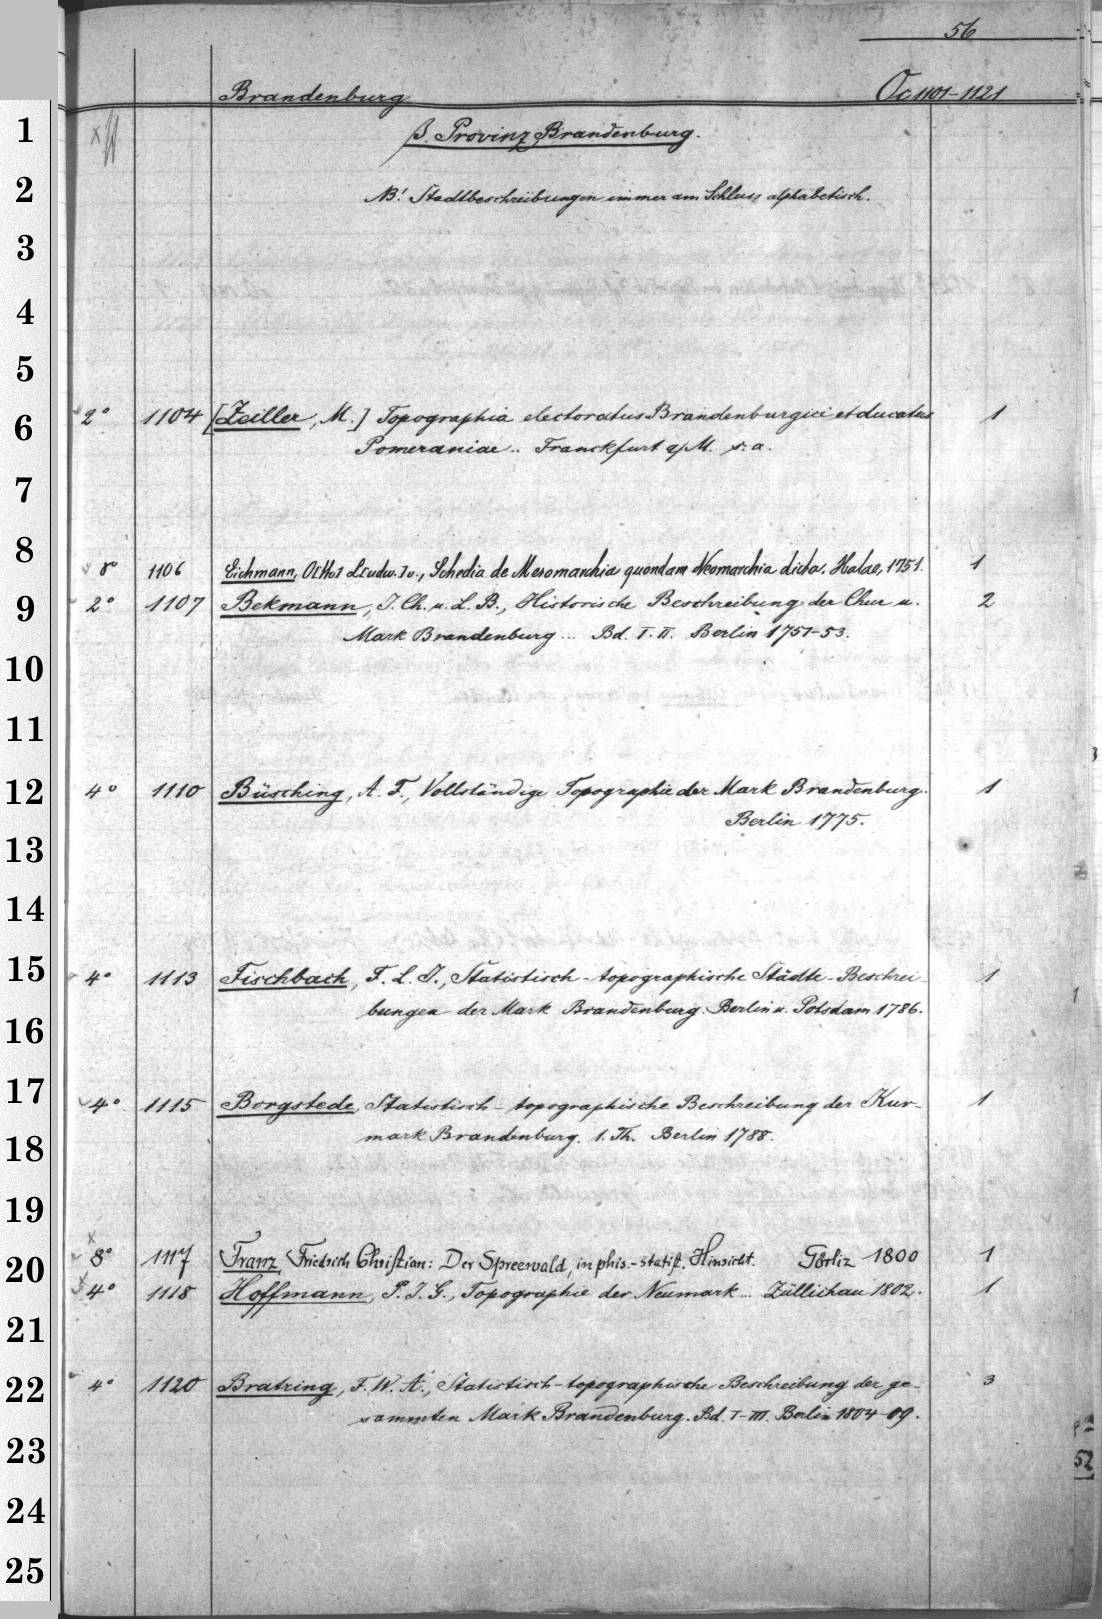 56
Brandenburg Oc 1101-1121
β. Provinz Brandenburg.
NB! Stadtbeschreibungen immer am Schluss alphabetisch.
2° 1104 [Zeiller, M.] Topographia electoratus Brandenburgici et ducatus 1
Pomeraniae.. Franckfurt a/M. s. a.
8° 1106 Eichmann, Ot[to] L[udw.] v., Schedia de Mesomarchia quondam Neomarchia dicta. Halae, 1751. 1
2° 1107 Bekmann, J. Ch. u. L. B., Historische Beschreibung der Chur u. 2
Mark Brandenburg... Bd. I. II. Berlin 1751-53.
4° 1110 Büsching, A. F., Vollständige Topographie der Mark Brandenburg. 1
Berlin 1775.
4° 1113 Fischbach, F. L. J., Statistisch-topographische Städte-Beschrei- 1
bungen der Mark Brandenburg. Berlin u. Potsdam 1786.
4° 1115 Borgstede, Statistisch-topographische Beschreibung der Kur- 1
mark Brandenburg. 1. Th. Berlin 1788.
8° 1117 Franz Friedrich Christian: Der Spreewald, in phis.-statist. Hinsicht. Görliz 1800 1
4° 1118 Hoffmann, P. J. G., Topographie der Neumark... Züllichau 1802. 1
4° 1120 Bratring, F. W. A., Statistisch-topographische Beschreibung der ge- 3
sammten Mark Brandenburg. Bd. I-III. Berlin 1804-09.
1
2
3
4
5
6
7
8
9
10
11
12
13
14
15
16
17
18
19
20
21
22
23
24
25
52